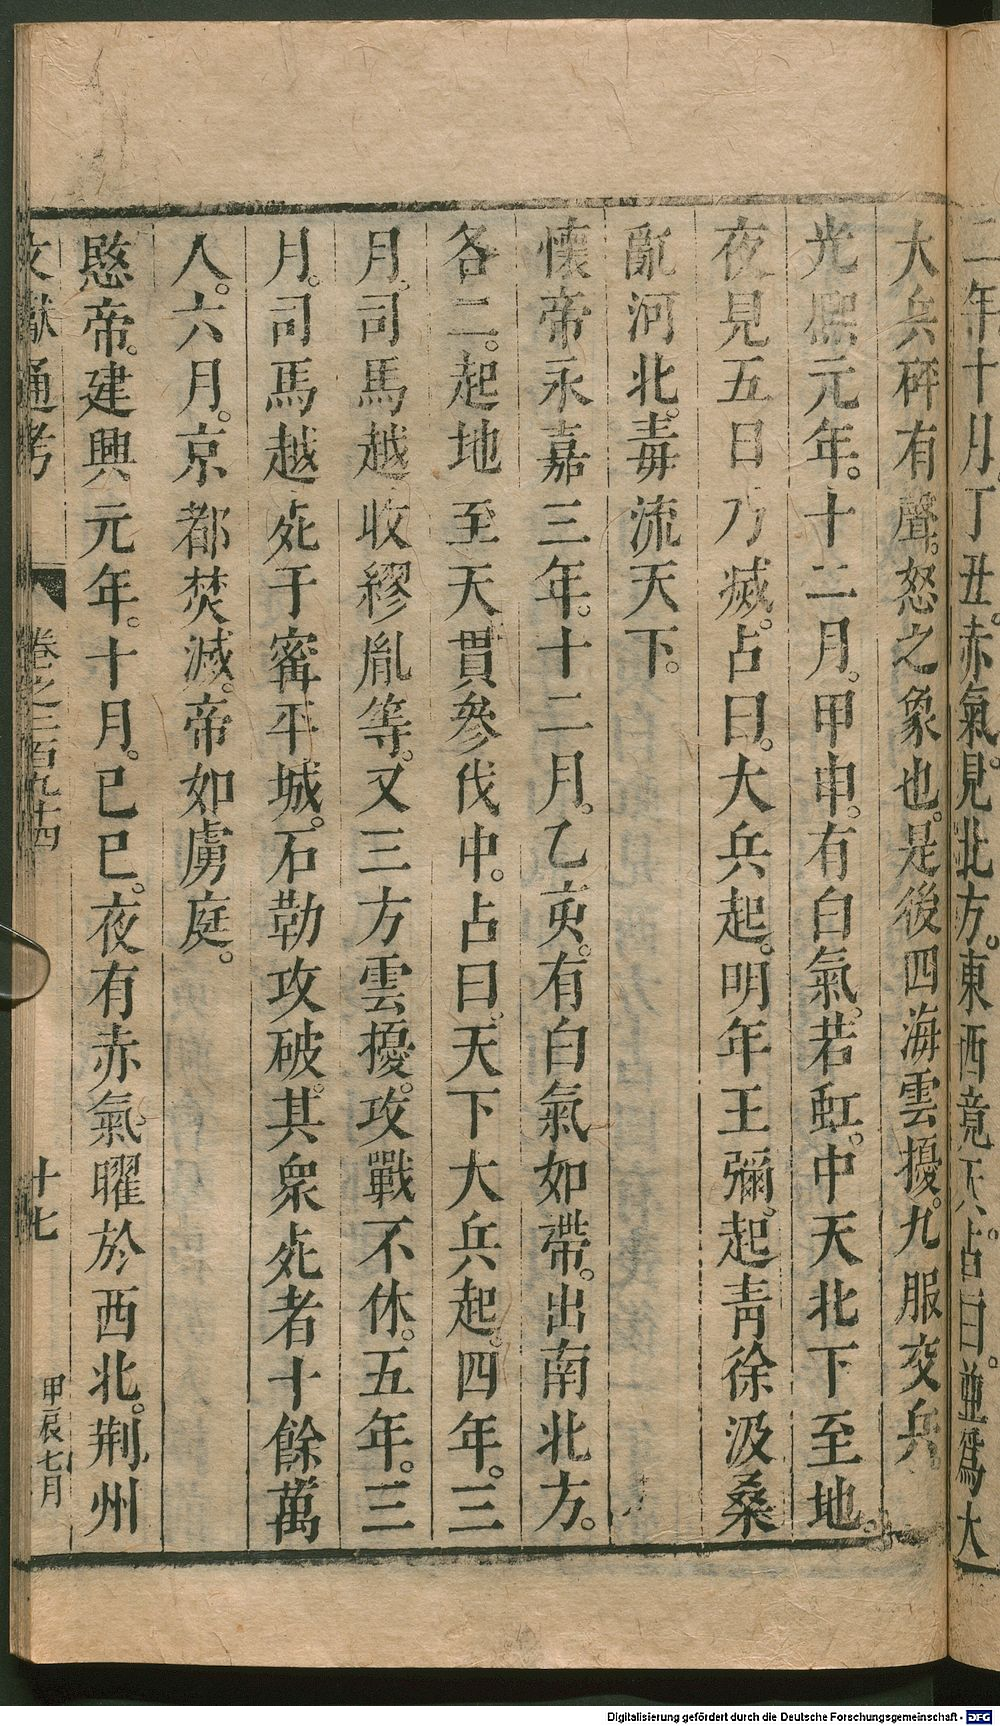 二年十月丁丑。赤氣。見北方。東西竟天。占曰。並爲大
大兵砰有聲。怒之象也。是後四海雲擾。九服交兵
光熙元年。十二月。甲申。有白氣。若虹。中天北下至地。
夜見五日乃滅。占曰。大兵起。明年王彌起靑徐汲桑
亂河北。毒流天下。
懷帝永嘉三年。十二月。乙亥。有白氣如帶。出南北方。
各二。起地至天貫參伐中。占曰。天下大兵起。四年。三
月。司馬越收繆胤等。又三方雲擾。攻戰不休。五年。三
月。司馬越死于甯平城。石勒攻破。其衆死者十餘萬
人。六月。京都焚滅。帝如虜庭。
愍帝。建興元年。十月。已巳。夜有赤氣曜於西北。荆州
文獻通考
卷之二百九十四
十七
甲辰七月
Digitalisierung gefördert durch die Deutsche Forschungsgemeinschaft - DFG